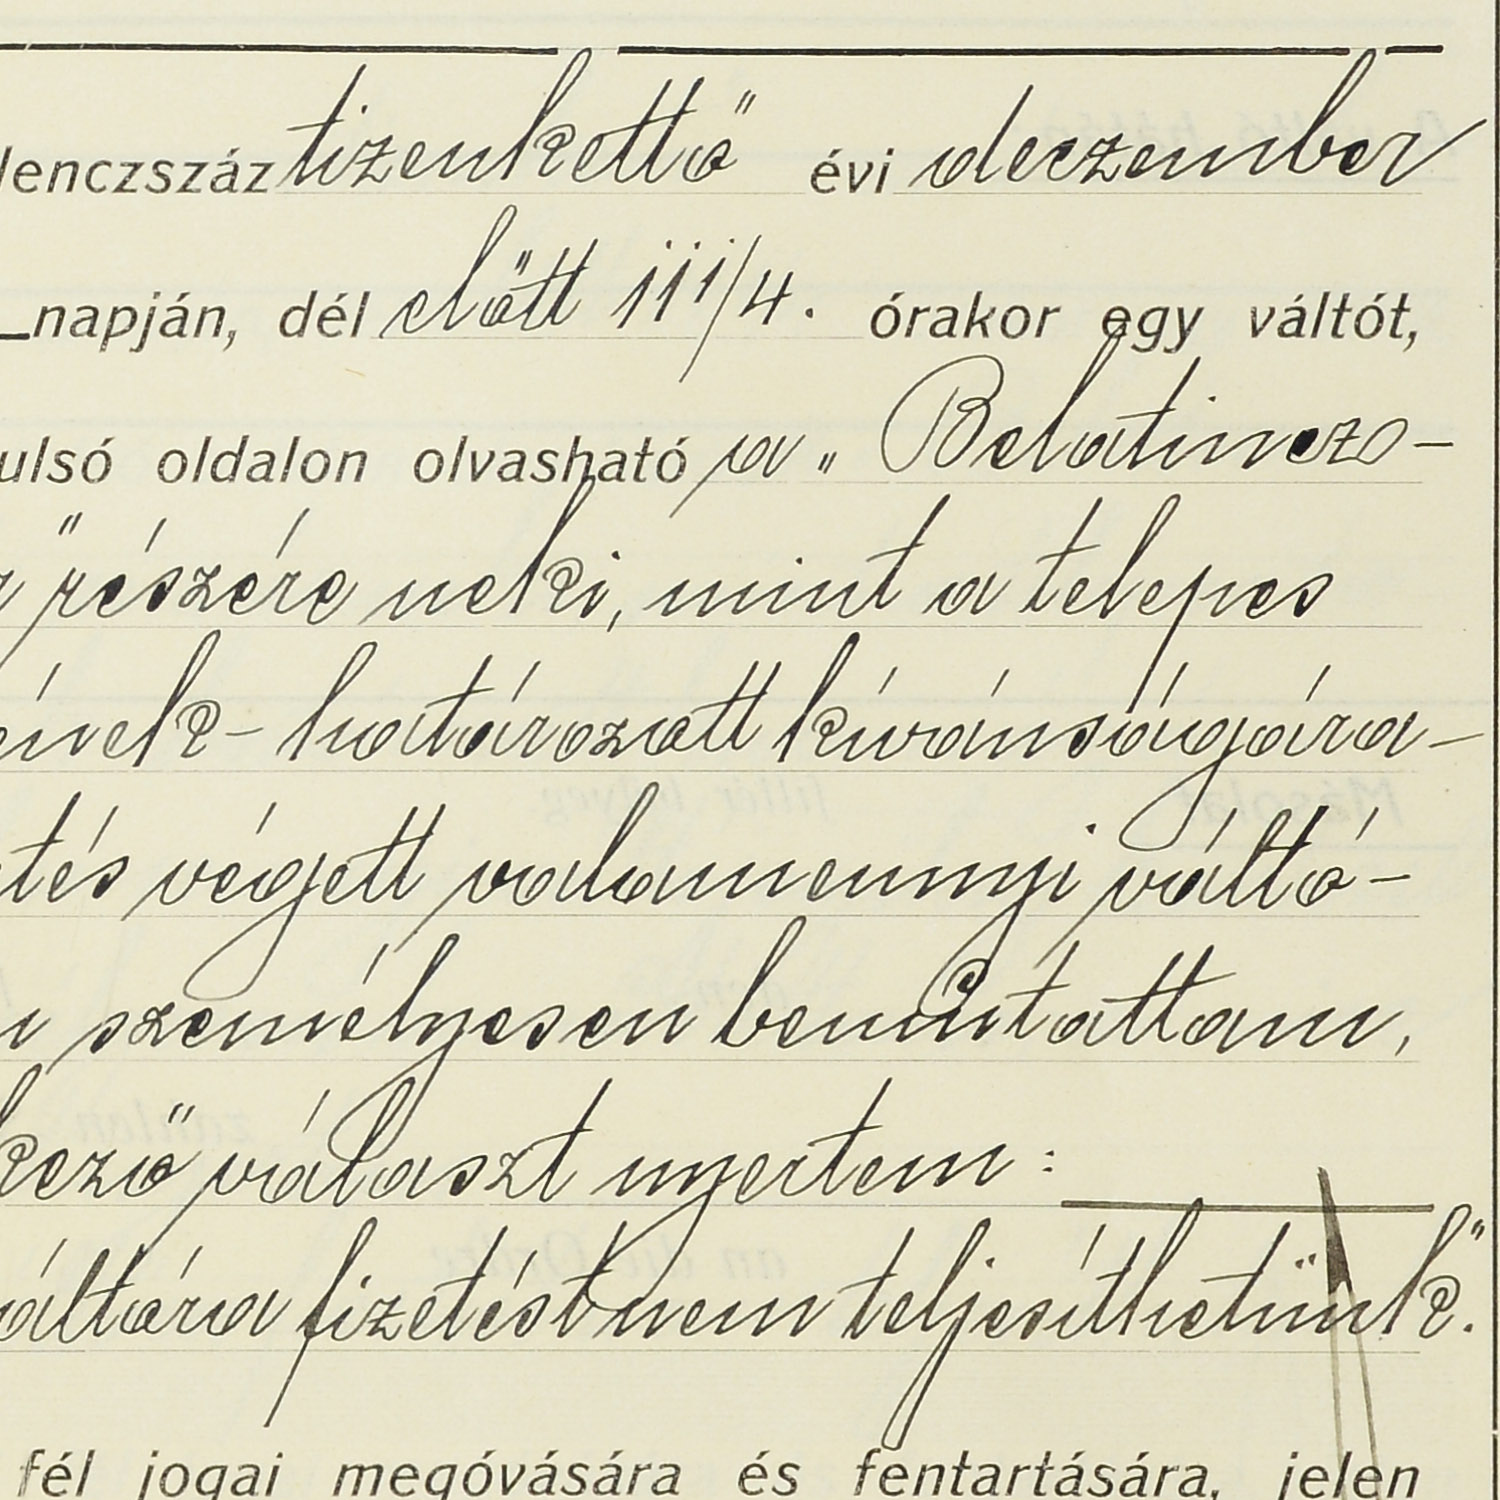 lenczszáz tizenkettő évi deczember
napján, dél előtt 11 1/4. órakor egy váltót,
ulsó oldalon olvasható a „Belatinczo-
r" részére neki, mint a telepes
ének - határozott kívánságára -
tés végett valamennyi váltó-
n személyesen bemutattam,
kező választ nyertem:
áltóra fizetést nem teljesíthetünk."
fél jogai megóvására és fentartására, jelen